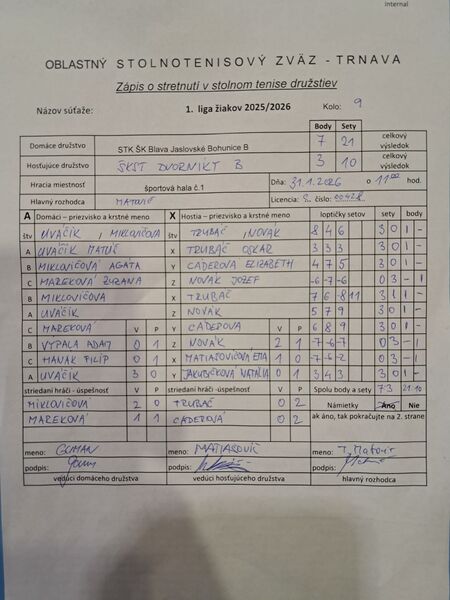 internal
OBLASTNÝ STOLNOTENISOVÝ ZVÄZ - TRNAVA
Zápis o stretnutí v stolnom tenise družstiev
Názov súťaže: 1. liga žiakov 2025/2026 Kolo: 9
Body Sety
Domáce družstvo STK ŠK Blava Jaslovské Bohunice B 7 21 celkový výsledok
Hosťujúce družstvo ŠKST DVORNIKY B 3 10 celkový výsledok
Hracia miestnosť športová hala č.1 Dňa: 31.1.2026 o 11:00 hod.
Hlavný rozhodca MATOVIČ Licencia: C číslo: 00428
A Domáci – priezvisko a krstné meno X Hostia – priezvisko a krstné meno loptičky setov sety body
štv UVAČIK, MIKLOVIČOVA štv TRUBAČ, NOVAK 8 4 6 3 0 1 -
A UVAČIK MATÚŠ X TRUBAČ OSKAR 3 3 3 3 0 1 -
B MIKLOVIČOVÁ AGATA Y CADEROVA ELIZABETH 4 7 5 3 0 1 -
C MAREKOVÁ ZUZANA Z NOVAK JOZEF -6 -7 -6 0 3 - 1
B MIKLOVIČOVA X TRUBAČ 7 6 -8 11 3 1 1 -
A UVAČIK Z NOVAK 5 7 9 3 0 1 -
C MAREKOVA V P Y CADEROVA V P 6 8 9 3 0 1 -
B VYPALA ADAM 0 1 Z NOVAK 2 1 -7 -6 -7 0 3 - 1
C HANAK FILIP 0 1 X MATIASOVIČOVÁ EMA 1 0 -7 -6 -2 0 3 - 1
A UVAČIK 3 0 Y JAKUBIČKOVA NATALIA 0 1 3 4 3 3 0 1 -
striedaní hráči - úspešnosť V P striedaní hráči - úspešnosť V P Spolu body a sety 7:3 21:10
MIKLOVIČOVA 2 0 TRUBAČ 0 2 Námietky Áno Nie
MAREKOVÁ 1 1 CADEROVÁ 0 2 ak áno, tak pokračujte na 2. strane
meno: GUMAN meno: MATIASOVIČ meno: T. Matovič
podpis: podpis: podpis:
vedúci domáceho družstva vedúci hosťujúceho družstva hlavný rozhodca